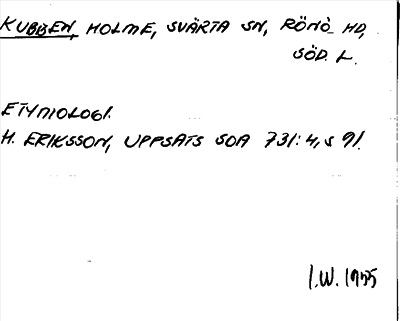 KUBBEN, HOLME, SVÄRTA SN, RÖNÖ HD,
SÖD. L.
ETYMOLOGI.
H. ERIKSSON, UPPSATS SOA 731:4, S 91.
I.W. 1955